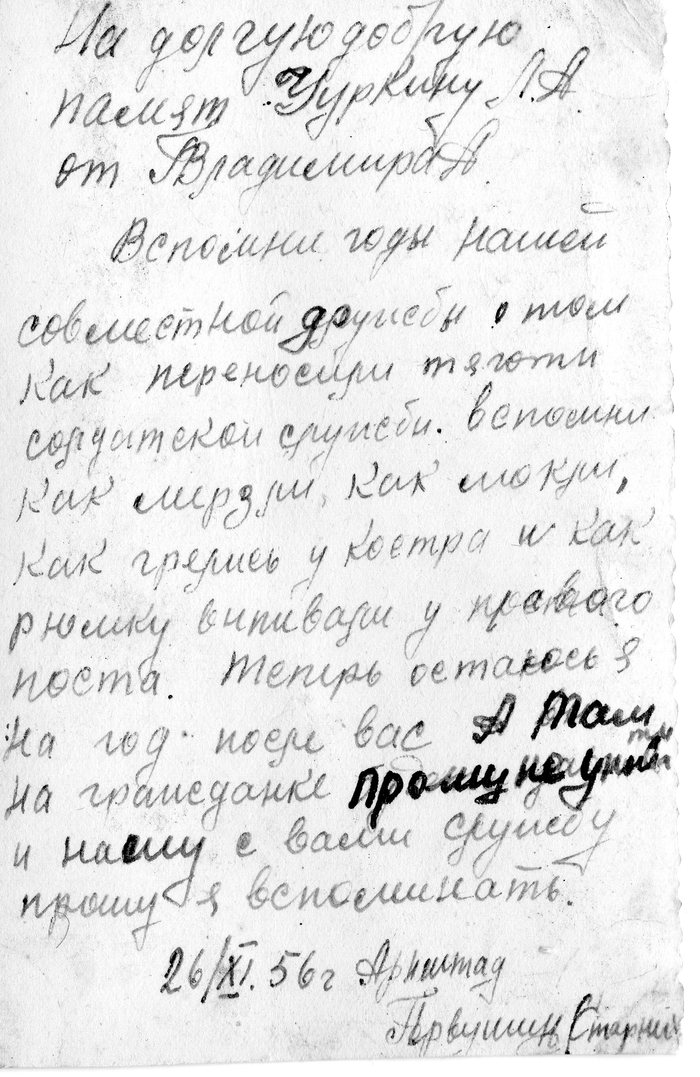 На долгую добрую
памят Чуркину Л.А
от Владимира А
Вспомни годы нашей
совместной дружбы о том
как переносили тяготи
солдатской службы. вспомни
как мерзли, как мокли,
как грелись у костра и как
рюмку випивали у правого
поста. Теперь остаюсь я
на год после вас А там
на гражданке прошу не
и нашу с вами службу
прошу я вспоминать.
26/XI. 56г Арнштад
Первушин (Старший